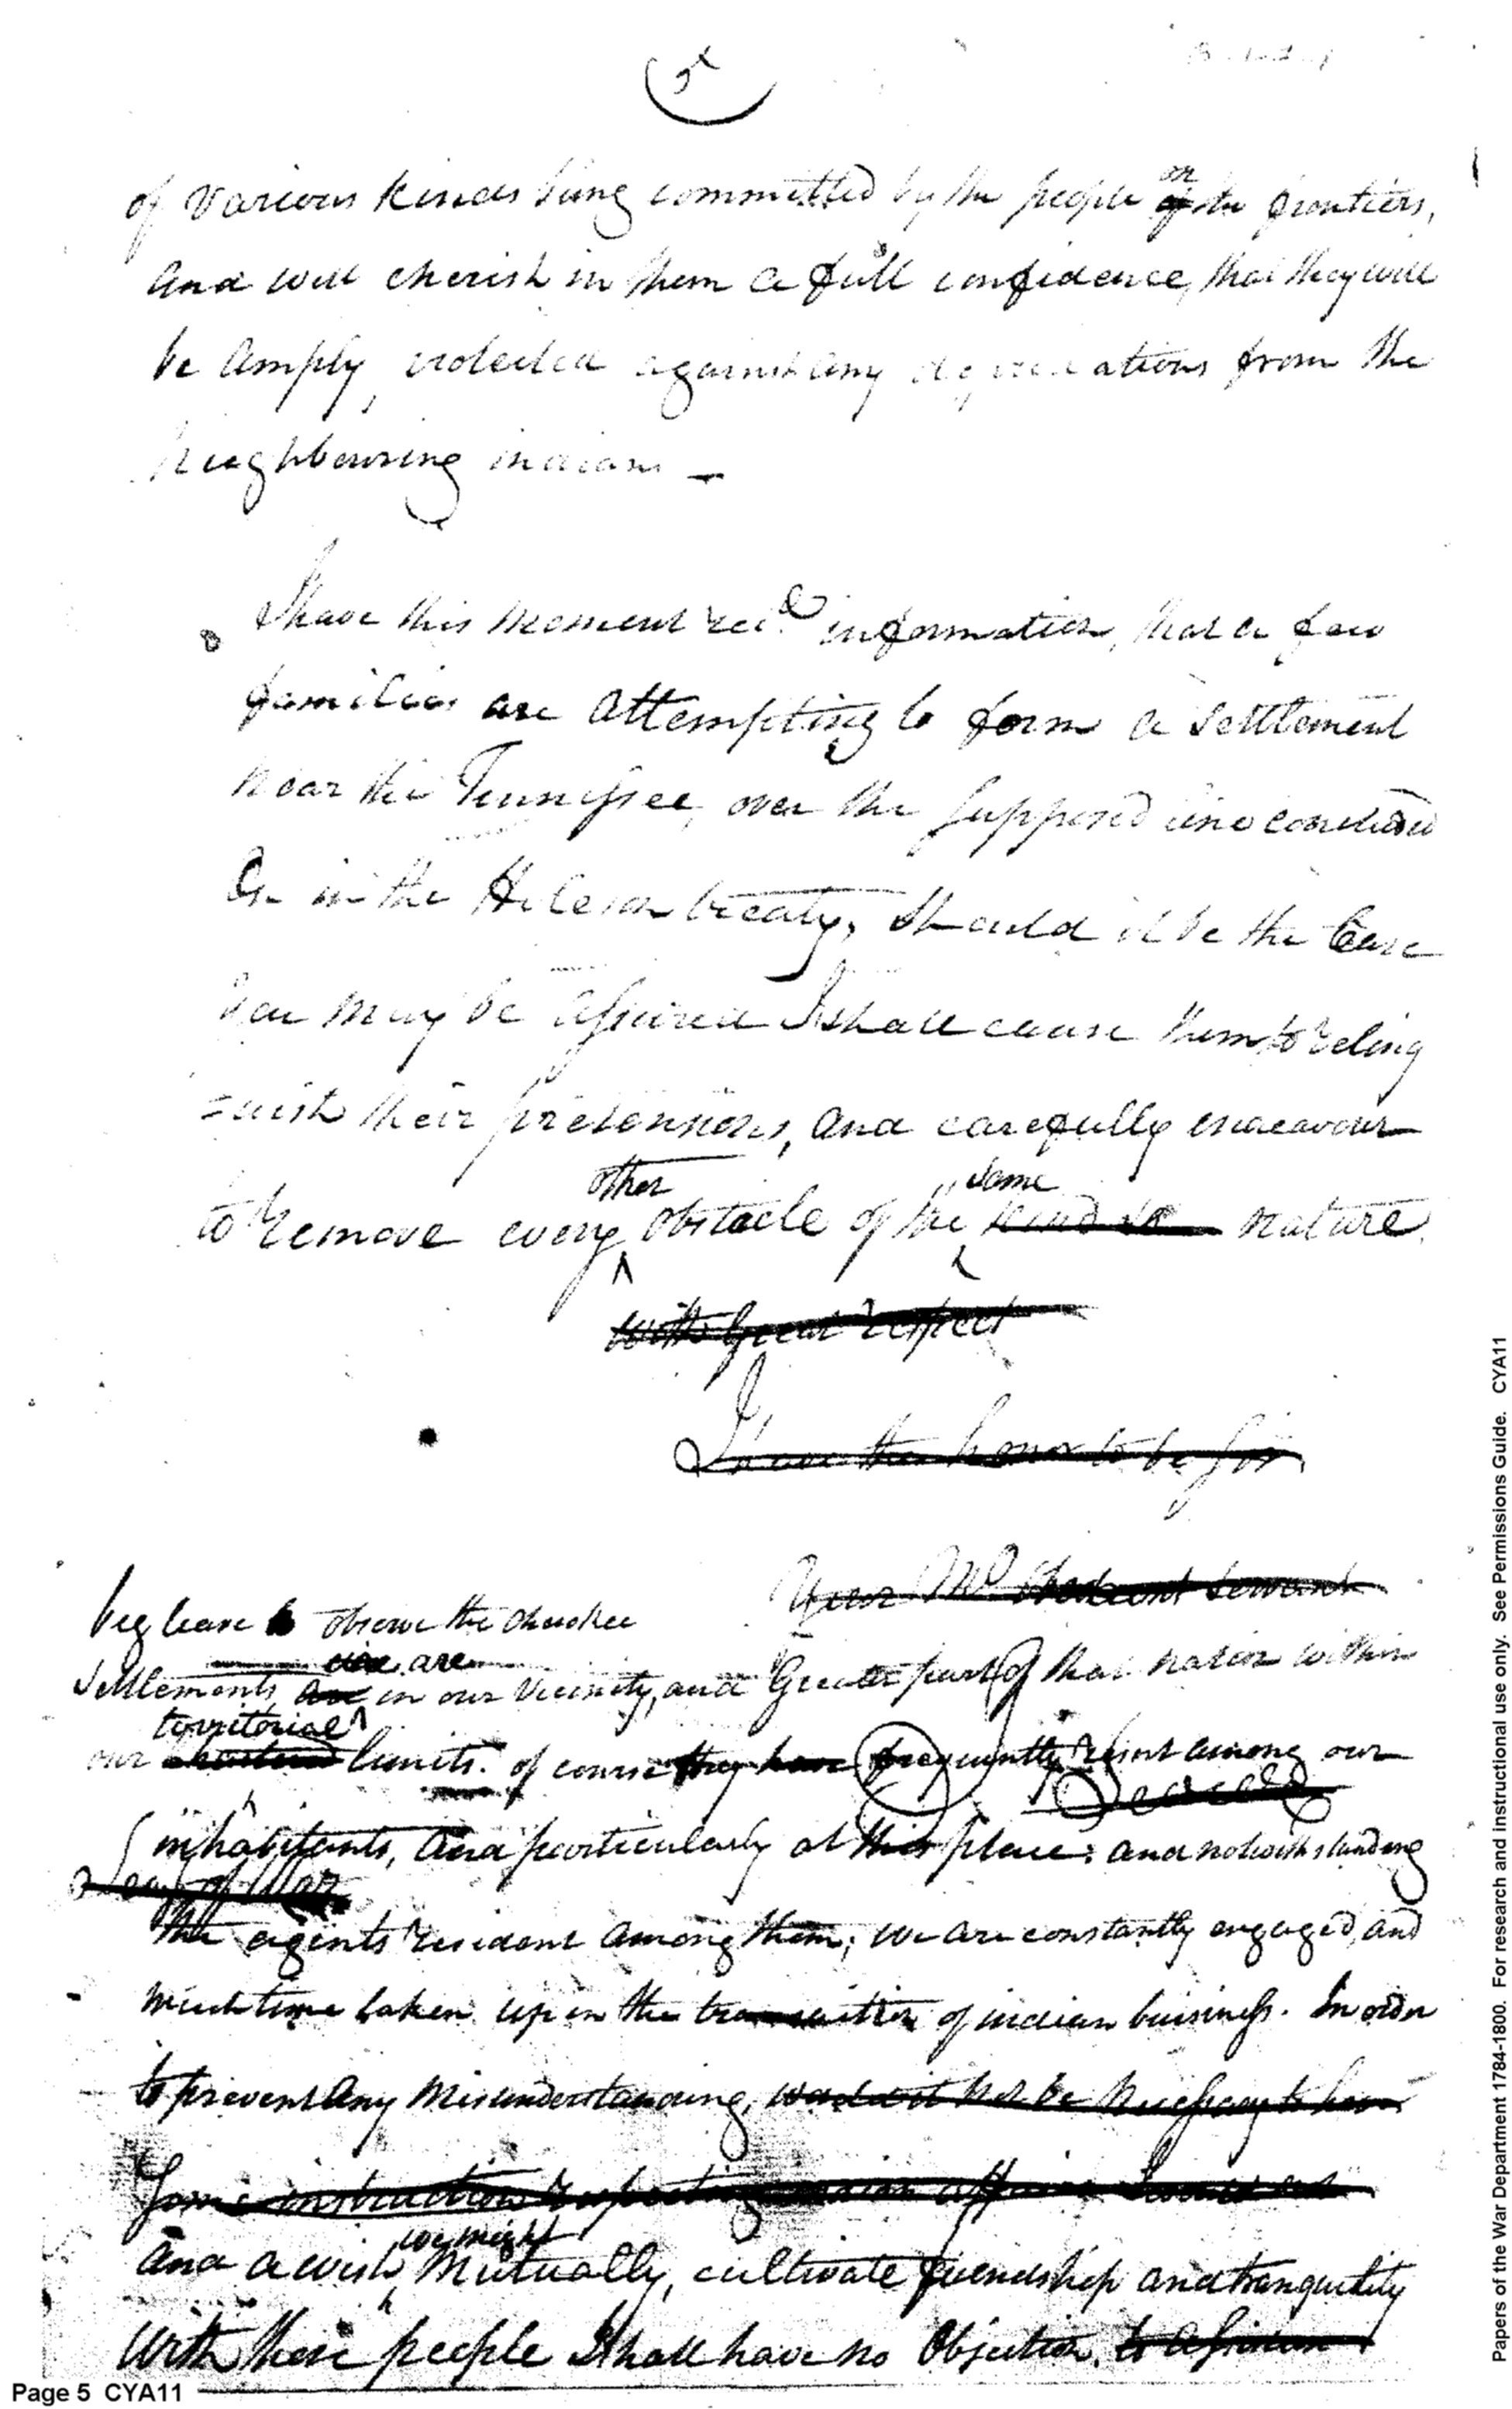 5
of various kinds being committed by the people on of the frontiers,
and will cherish in them a full confidence, that they will
be amply protected against any depredations from the
neighbouring indians —
I have this moment recd. information, that a few
families are attempting to form a settlement
near the Tennessee, over the supposed line concluded
on in the Holston treaty, should it be the Case
you may be assured I shall cause them to relinq
=uish their pretensions, and carefully endeavour
other same
to remove every obstacle of the kind nature.
With Great respect
I have the honor to be Sir
Your Mo Obedient Servant
beg leave to observe the cherokee
are
Settlements are in our Vicinity, and Greater part of that nation within
territorial
our limits. of course they have frequently among our
inhabitants, and particularly at this place: and notwithstanding
of War
the agents resident among them, we are constantly engaged, and
much time taken up in the transaction of indian buisiness. In order
to prevent any misunderstanding, would it not be necessary to have
Some instruction respecting indian affairs
we might
and a wish Mutually, cultivate friendship and tranquility
With these people I shall have no Objection, to
Page 5 CYA11
Papers of the War Department 1784-1800. For research and instructional use only. See Permissions Guide. CYA11